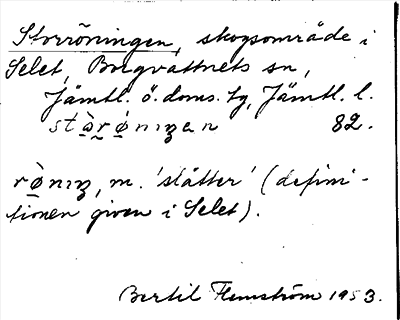 Storröningen, skogsområde i
Selet, Borgvattnets sn,
Jämtl. ö. doms. tg, Jämtl. l.
82.
m. 'slåtter' (defini-
tionen given i Selet).
Bertil Flemström 1953.